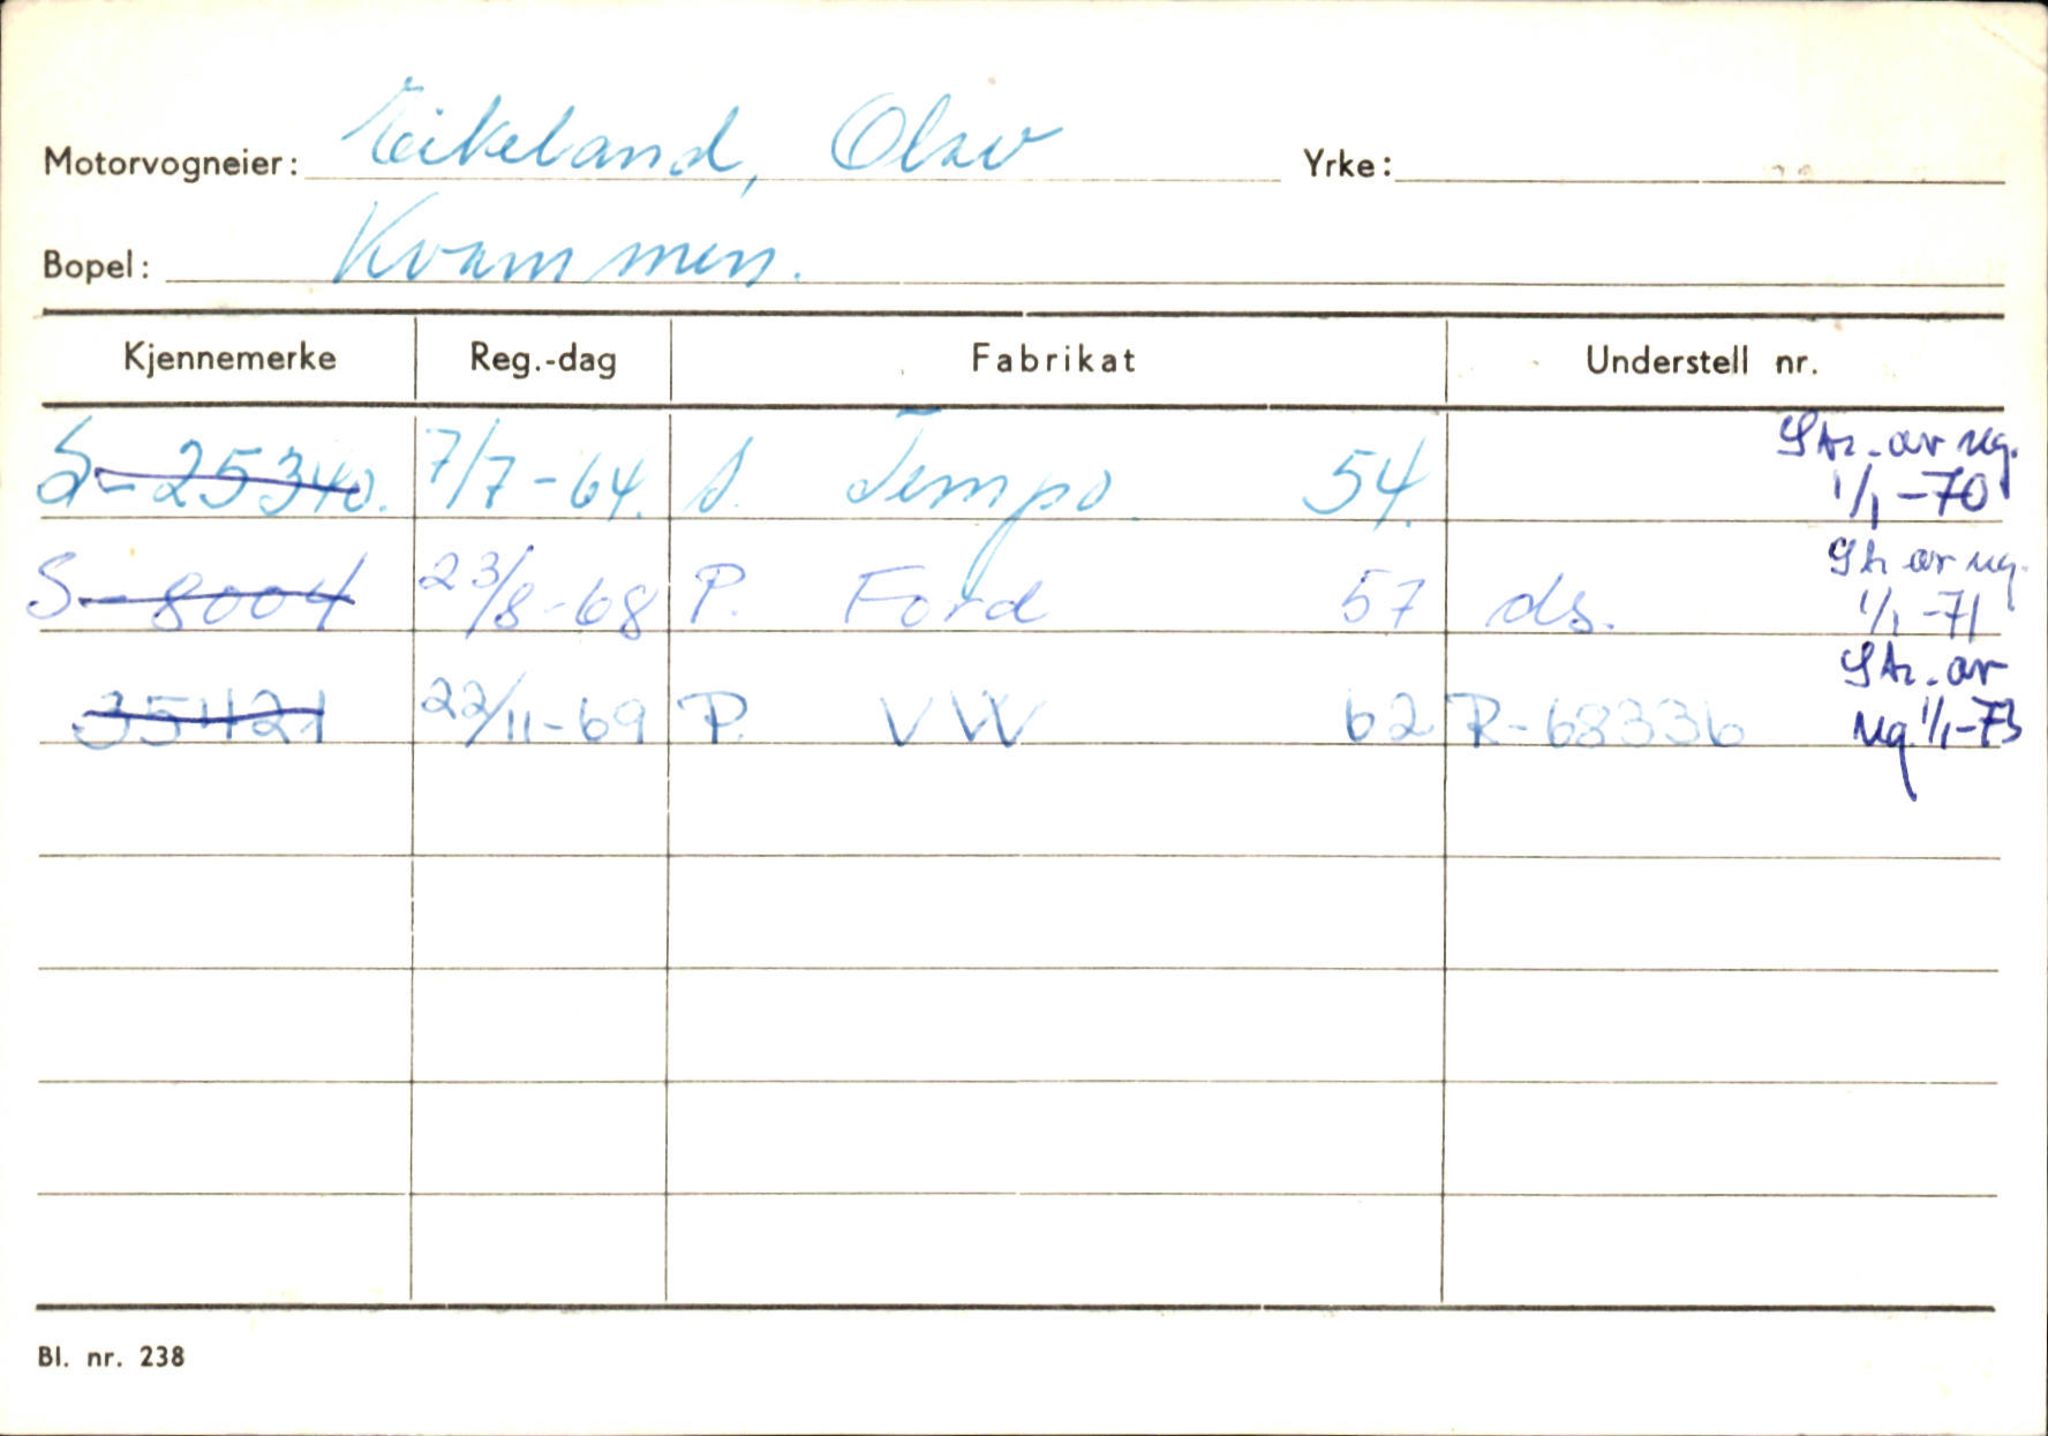 Motorvogneier: Eikeland, Olav Yrke:
Bopel: Kvammen.
Kjennemerke Reg.-dag Fabrikat Understell nr.
S-25340. 7/7-64. S. Tempo. 54. Str. av reg. 1/1-70
S-8004 23/8-68 P. Ford 57 ds. Str av reg. 1/1-71
35421 22/11-69 P. VW 62 R-68336 Str. av reg. 1/1-73
Bl. nr. 238